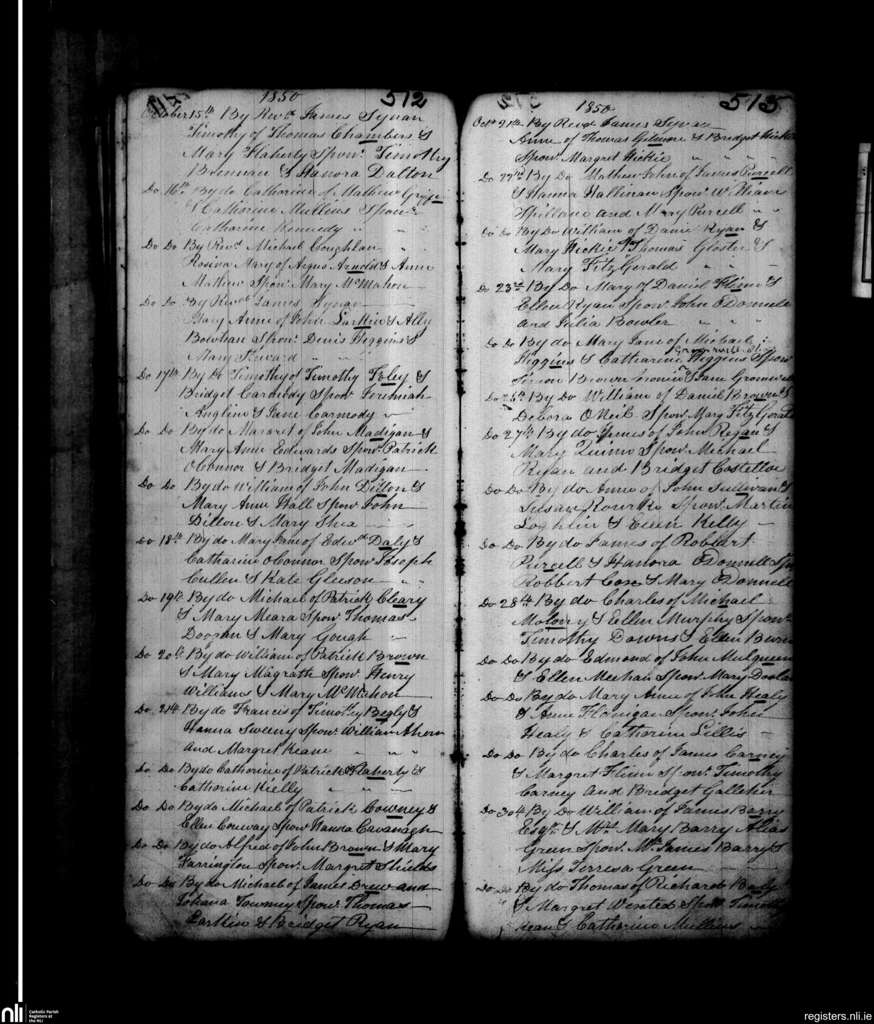 1850 512
October 15th By Revd James Synan
Timothy of Thomas Chambers &
Mary Flaherty Sponr Timothy
Brennan & Hanora Dalton
Do 16th By do Catherine of Mathew
& Catherine Mullins Sponr
Catharine Kennedy
Do Do By Revd Michael Coughlan
Rosina Mary of Argus Arnold & Anne
Mathew Sponr Mary McMahon
Do Do By Revd James Synan
Mary Anne of John Larkin & Ally
Bowhan Sponr Denis Higgins &
Mary
Do 17th By Do Timothy of Timothy Foley &
Bridget Carmedy Sponr Jeremiah
Anglim & Jane Carmedy
Do Do By do Margret of John Madigan &
Mary Anne Eedwards Sponr Patrick
OConnor & Bridget Madigan
Do Do By do William of John Dillon &
Mary Anne Hall Sponr John
Dillon & Mary Shea
Do 18th By do Mary Jane of Edwd Daly &
Catharine OConnor Sponr Joseph
Cullen & Kate Gleeson
Do 19th By do Michael of Patrick Cleary
& Mary Meara Sponr Thomas
Doogan & Mary Gough
Do 20th By do William of Patrick Brown
& Mary Magrath Sponr Henry
Williams & Mary McMahon
Do 21th By do Francis of Timothy Begly &
Hanna Sweeny Sponr William Ahern
and Margret Keane
Do Do By do Catherine of Patrick Flaherty &
Catherine Kielly
Do Do By do Michael of Patrick Downey &
Ellen Conway Sponr Hanna Cavanagh
Do Do By do Alfred of John Brown & Mary
Farrington Sponr Margret Shields
Do Do By do Michael of James Drew and
Johana Sponr Thomas
Larkin & Bridget Ryan
1850 513
Octr 21th By Revd James Synan
Anne of Thomas Gilmore & Bridget
Sponr Margret Hickie
Do 22th By Do Mathew John of James Purcell
& Hanna Hallinan Sponr William
Spillane and Mary Purcell
Do Do By Do William of Daniel Ryan &
Mary Hickie Thomas Gloster &
Mary FitzGerald
Do 23th By Do Mary of Daniel Flinn &
Ellen Ryan Sponr John ODonnell
and Julia Bowler
Do Do By do Mary Jane of Michael
Higgins & Catharine Higgins Sponr
Brown & Jane
Do 25th By Do William of Daniel Brown &
Debora ONeil Sponr Mary FitzGerald
Do 27th By do James of John Regan &
Mary Quinn Sponr Michael
Ryan and Bridget Costelloe
Do Do By do Anne of John Sullivan &
Susan Rourke Sponr Martin
Loghlin & Ellen Kelly
Do Do By do James of Robbart
Purcell & Hanora ODonnell
Robbert Cox & Mary ODonnell
Do 28th By do Charles of Michael
Molony & Ellen Murphy Sponr
Timothy Downs & Ellen
Do Do By do Edmond of John Mulqueen
& Ellen Meehan Sponr Mary Doolan
Do Do By do Mary Anne of John Healy
& Anne Flanigan Sponr John
Healy & Catherine Lillis
Do Do By do Charles of James Carney
& Margret Flinn Sponr Timothy
Carney and Bridget Galleher
Do 30th By Do William of James Barry
Esqr & Mrs Mary Barry Alias
Green Sponr Mr James Barry &
Miss Terresa Green
Do Do By do Thomas of Richard
& Margret Wersted Sponr Timothy
& Catharine Mullins
nli Catholic Parish Registers at the NLI
registers.nli.ie